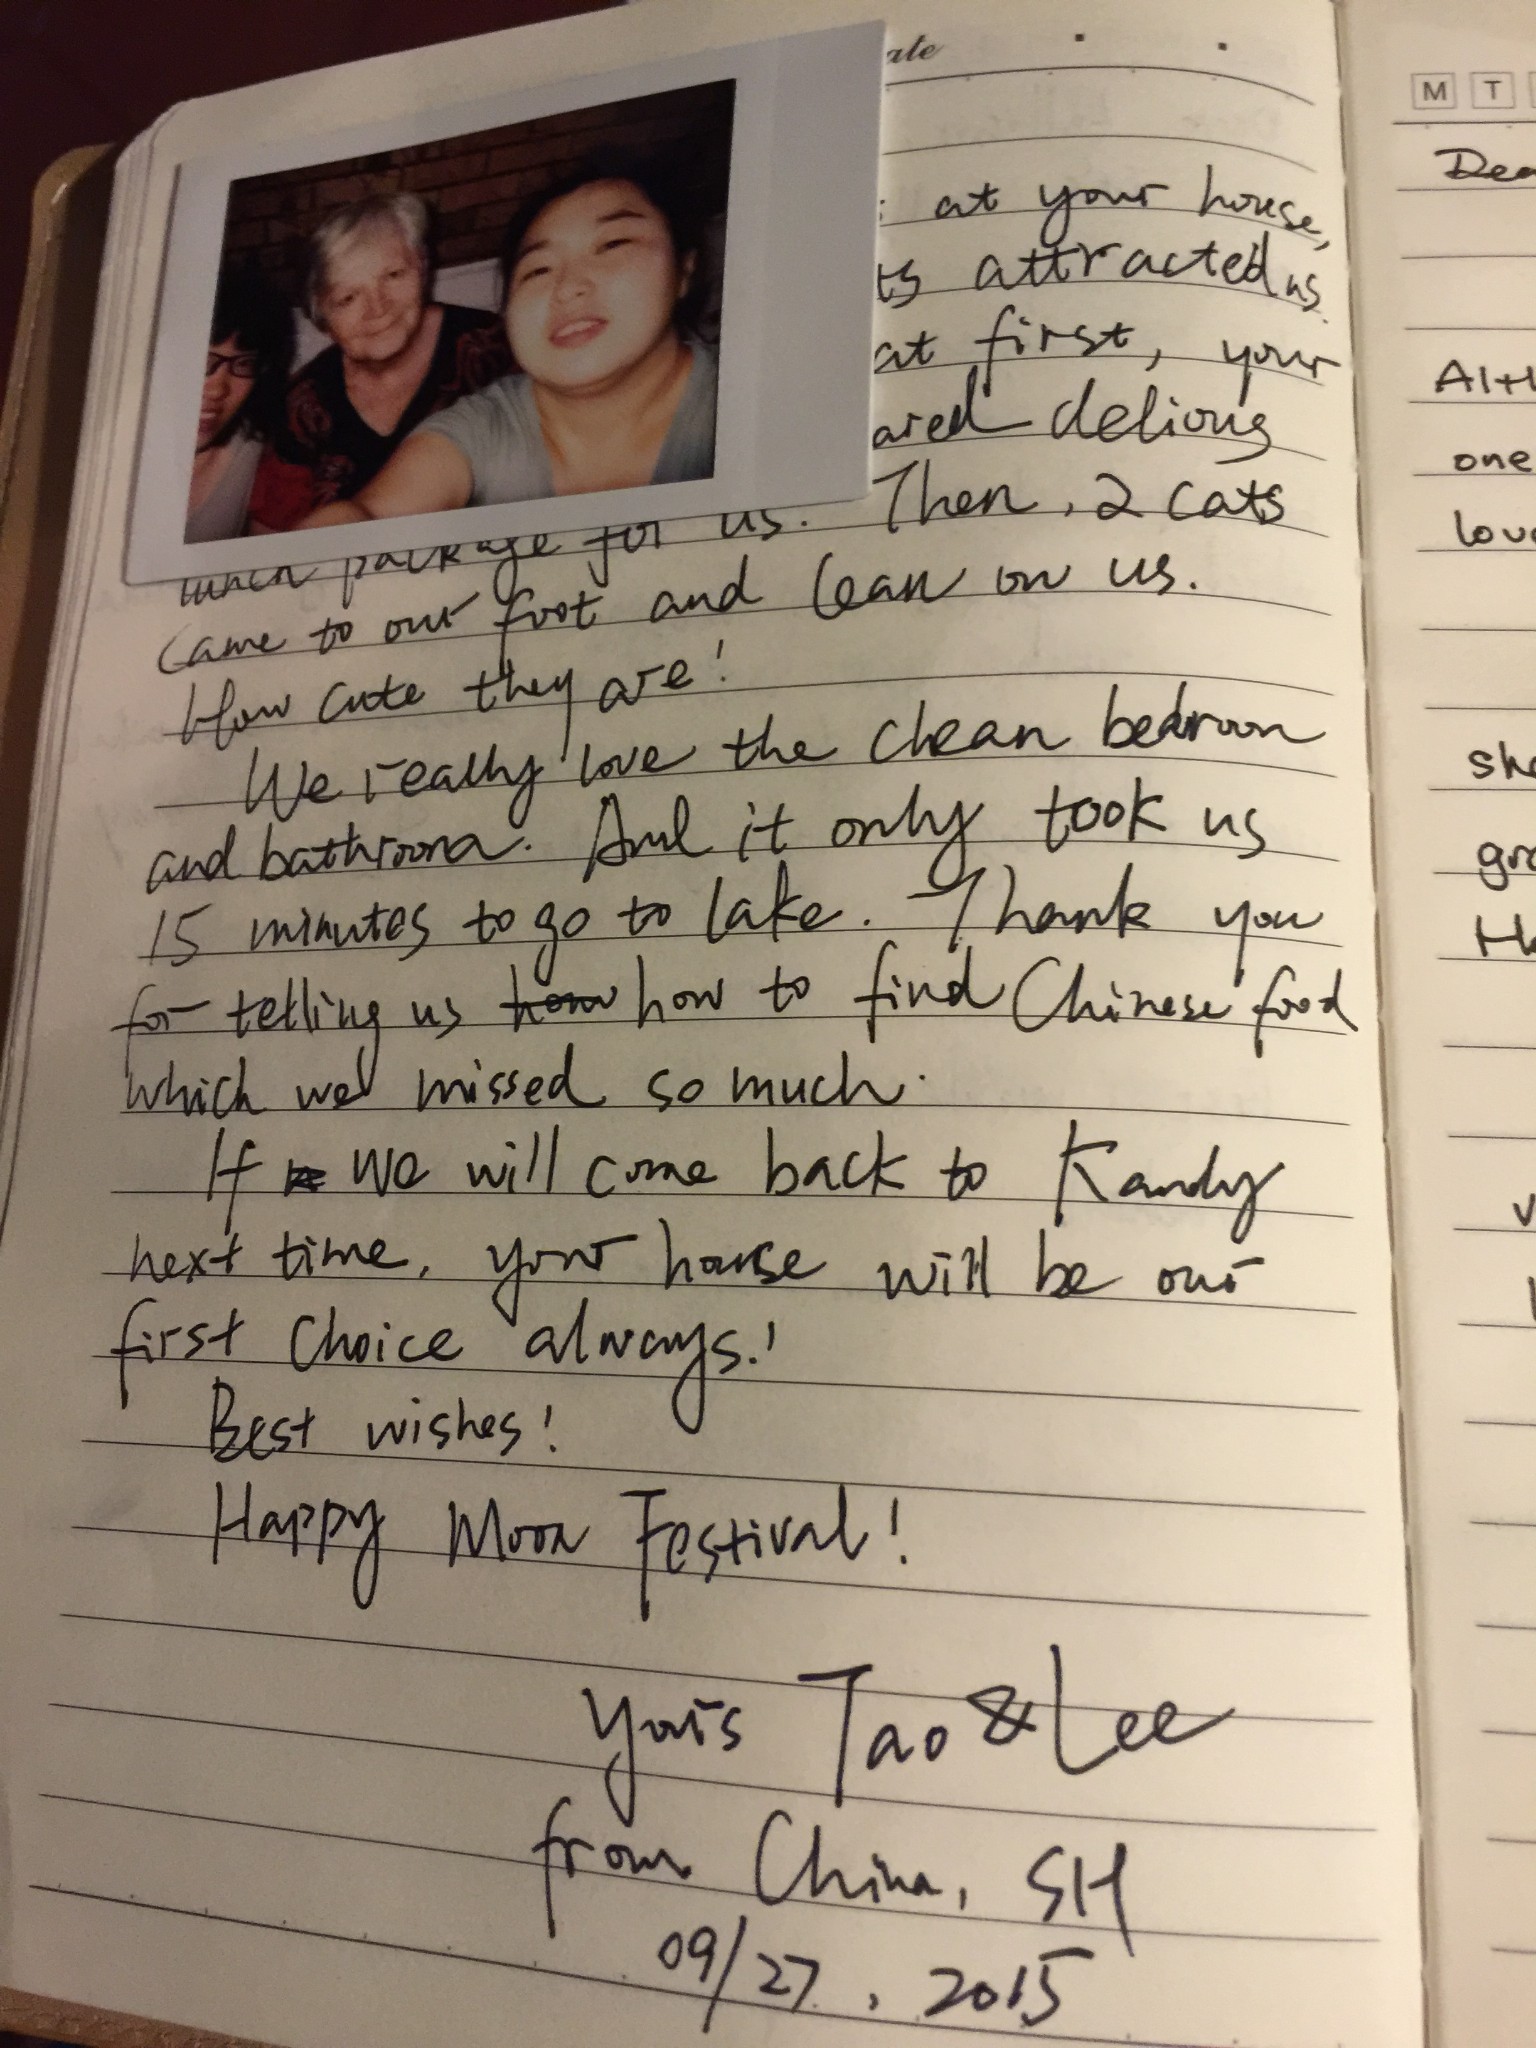 ate
at your house,
ts attracted us.
at first, your
ared delious
lunch package for us. Then, 2 cats
came to our foot and lean on us.
How cute they are!
We really love the clean bedroon
and bathroom. And it only took us
15 minutes to go to lake. Thank you
for telling us how how to find Chinese food
which we missed so much.
If we will come back to Kandy
next time, your house will be our
first choice always!
Best wishes!
Happy Moon Festival!
Yours Tao & Lee
from China, SH
09/27, 2015
M T
Dea
one
lov
sh
gr